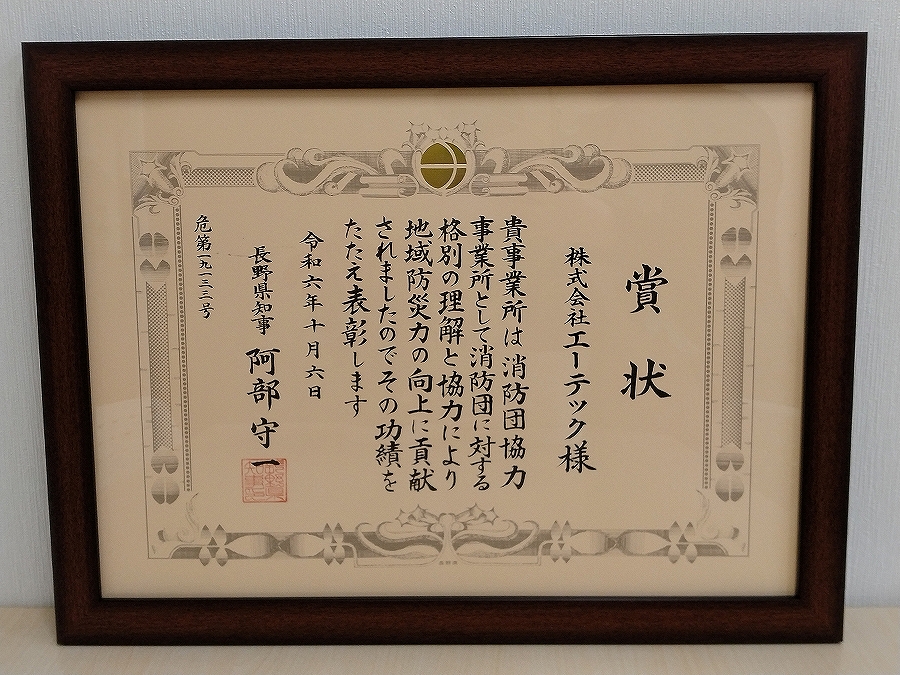 賞状
株式会社エーテック様
貴事業所は消防団協力
事業所として消防団に対する
格別の理解と協力により
地域防災力の向上に貢献
されましたのでその功績を
たたえ表彰します
令和六年十月六日
長野県知事 阿部守一
危第一九一三二号